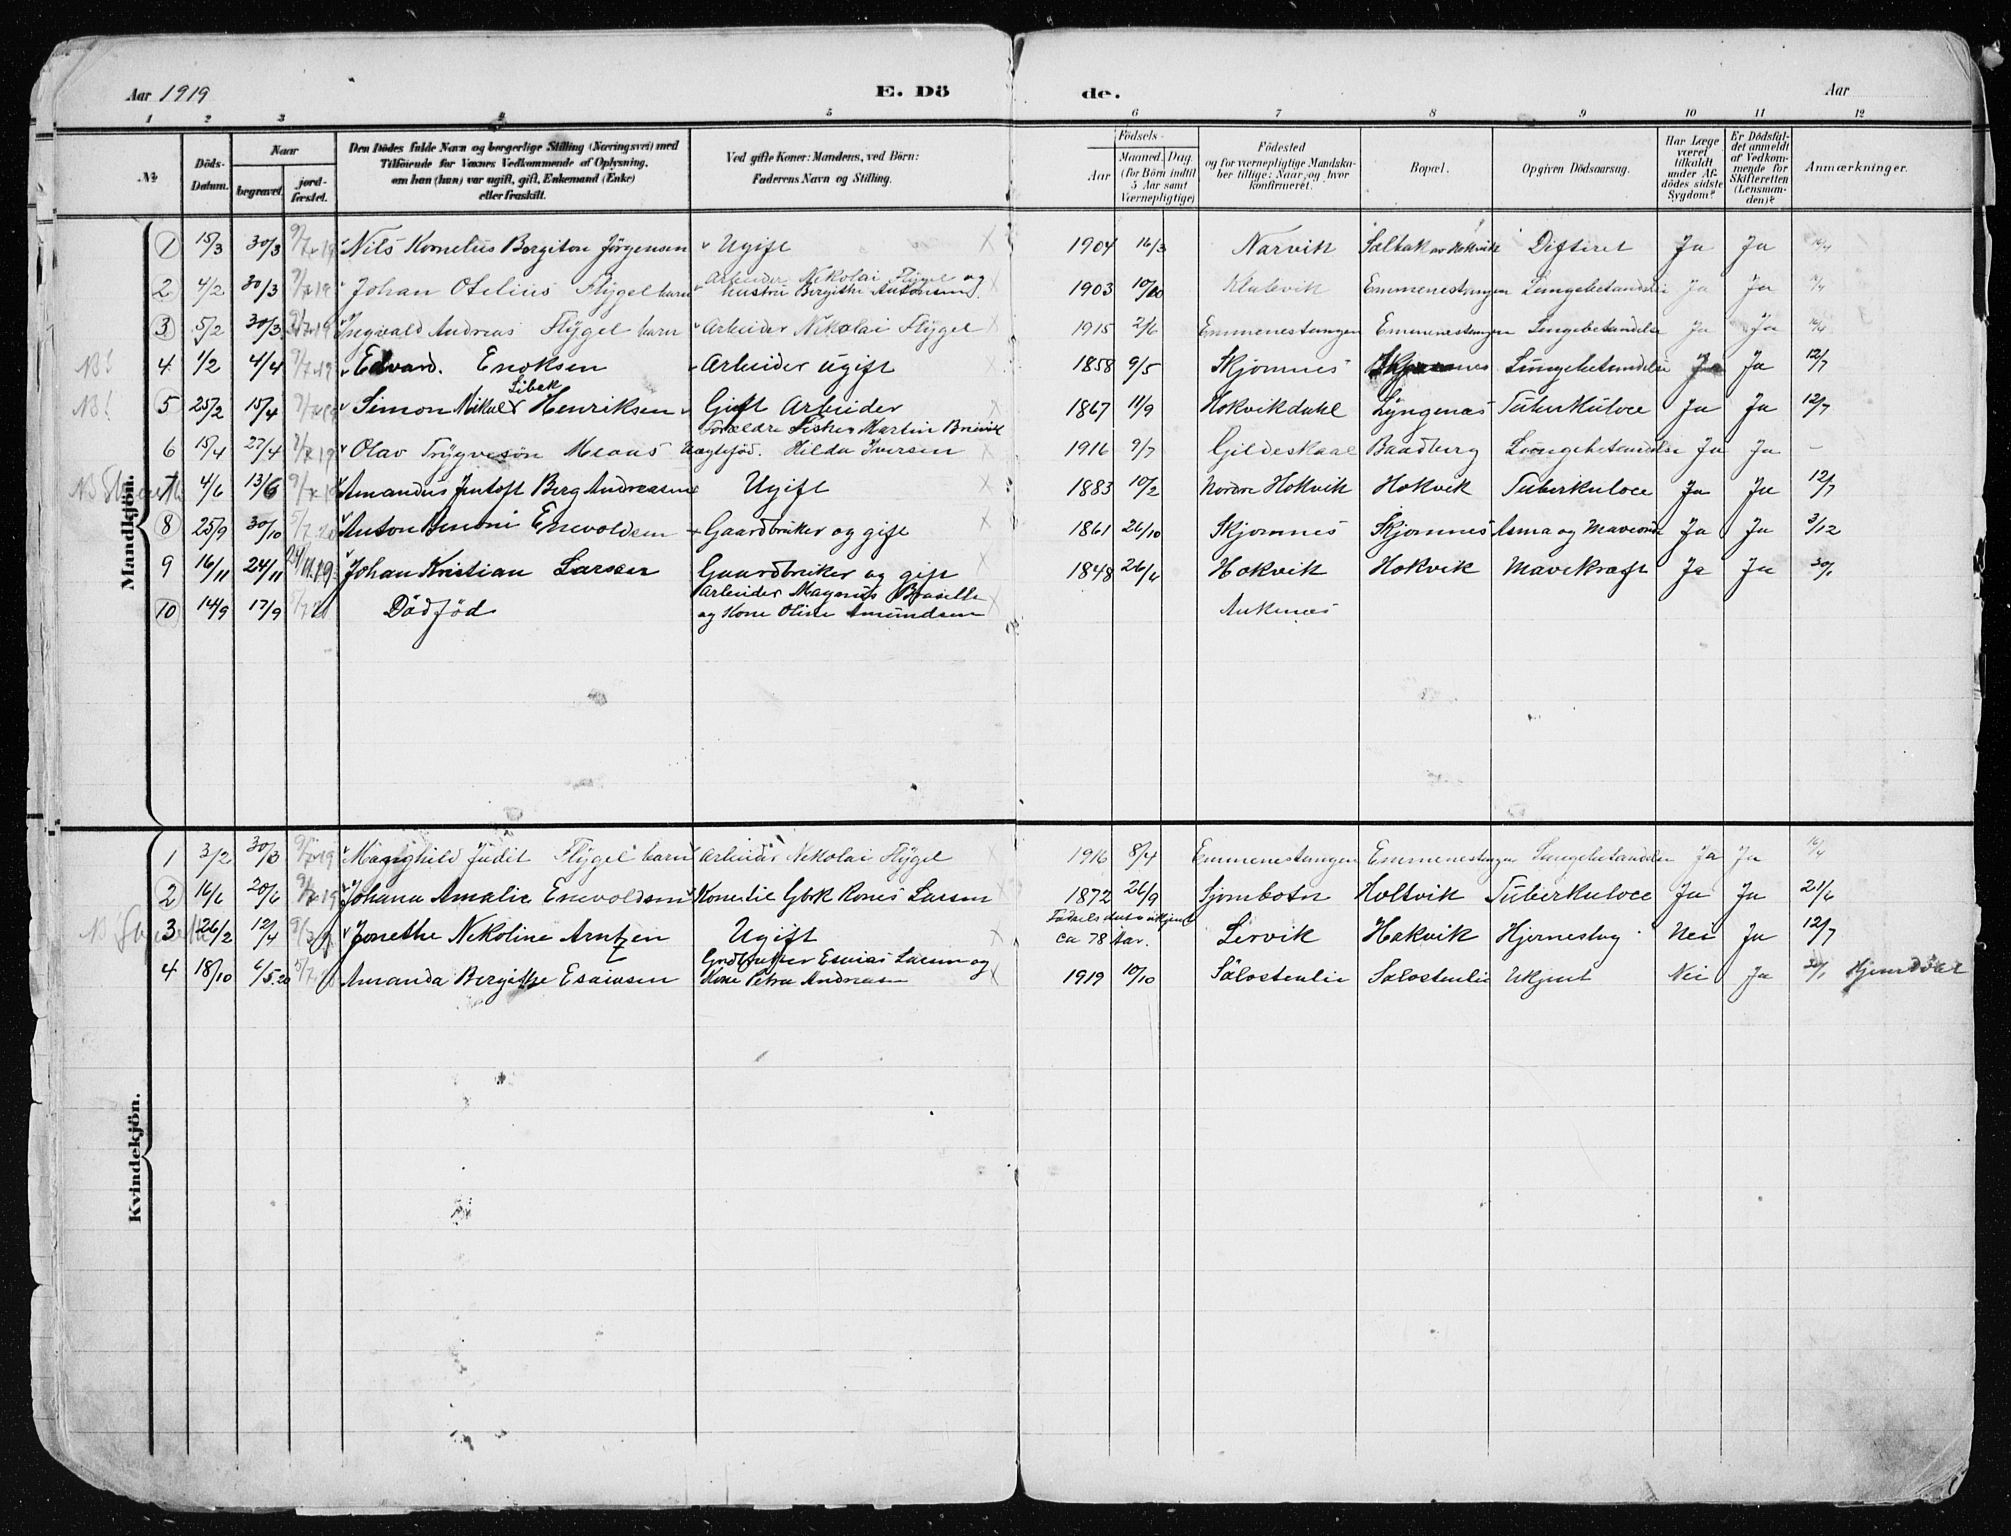 Aar 1919 E. Dö de. Aar
1 2 3 4 5 6 7 8 9 10 11 12
№ Döds-Datum. Naar begravet. jord-fæstet. Den Dödes fulde Navn og borgerlige Stilling (Næringsvei) med Tilföiende for Voxnes Vedkommende af Oplysning, om han (hun) var ugift, gift, Enkemand (Enke) eller fraskilt. Ved gifte Koner: Mandens, ved Börn: Faderens Navn og Stilling. Födsels- Aar Maaned. Dag. (for Börn indtil 5 Aar samt Værnepligtige) Födested og for værnepligtige Mandskaber tillige: Naar og hvor konfirmeret. Bopæl. Opgiven Dödsaarsag. Har Læge været tilkaldt under Afdödes sidste Sygdom? Er Dödsfaldet anmeldt af Vedkommende for Skifteretten (Lensmanden)? Anmærkninger.
Mandkjön.
1 15/3 30/3 9/7 19 Nils Kornelius Bergiton Jörgensen Ugift 1904 16/3 Narvik Saltbak av Hokvik Difteret Ja Ja
2 4/2 30/3 9/7 19 Johan Otelius Flygel barn Arbeider Nikolai Flygel og hustru Bergithe Antonsen 1903 10/10 Klubvik Emmenestangen Lungebetændelse Ja Ja
3 5/2 30/3 9/7 19 Ingvald Andreas Flygel barn Arbeider Nikolai Flygel 1915 2/6 Emmenestangen Emmenestangen Lungebetændelse Ja Ja
NB! 4 1/2 4/4 9/7 19 Edvard. Enoksen Arbeider ugift 1858 9/5 Skjomnes Skjomnes Lungebetændelse Ja Ja 12/7
NB! 5 25/2 15/4 Simon Mikal Libak Henriksen Gift Arbeider 1867 11/9 Hokvikdahl Lyngenes Tuberkuloce Ja Ja 12/7
6 15/4 27/4 Olav Trygvesön Meaas Uægtefød. Foreldre Fisker Martin Breivik Hilda Iversen 1916 9/7 Gildeskaal Baadberg Lungebetændelse Ja Ja –
NB 7 4/6 13/6 Amandus Jentoft Berg Andreasen Ugift 1883 10/2 Nordre Hokvik Hokvik Tuberkuloce Ja Ja 12/7
8 25/9 30/10 Anton Benoni Enevoldsen Gaardbruker og gift 1861 26/10 Skjomnes Skjomnes Asma og Maveonde Ja Ja 3/12
9 16/11 24/11 24/11.19 Johan Kristian Larsen Gaardbruker og gift 1848 26/4 Hokvik Hokvik Mavekræft Ja Ja 30/1
10 14/9 17/9 Dödföd Arbeider Magnus Braselle og Kone Oline Amundsen Ankenes
Kvindekjön.
1 3/2 30/3 9/7 19 Magnhild Judit Flygel barn Arbeider Nikolai Flygel 1916 8/4 Emmenestangen Emmenestangen Lungebetændelse Ja Ja 16/4
2 16/6 20/6 9/7 19 Johana Amalie Enevoldsen Kone til Gbk Rones Larsen 1872 26/9 Sjombotn Holtvik Tuberkuloce Ja Ja 21/6
NB 3 26/2 12/4 Jonethe Nikoline Arntzen Ugift Fødselsdato ukjent ca 78 Aar. Lervik Hakvik Hjerneslag Nei Ja 12/7
4 18/10 6/5.20 Amanda Bergitte Esaiasen Esaias Larsen og Kone Petra Andreasen 1919 10/10 Sälostenlie Salostenlie Ukjent Nei Ja 30/1 Hjemdöbt